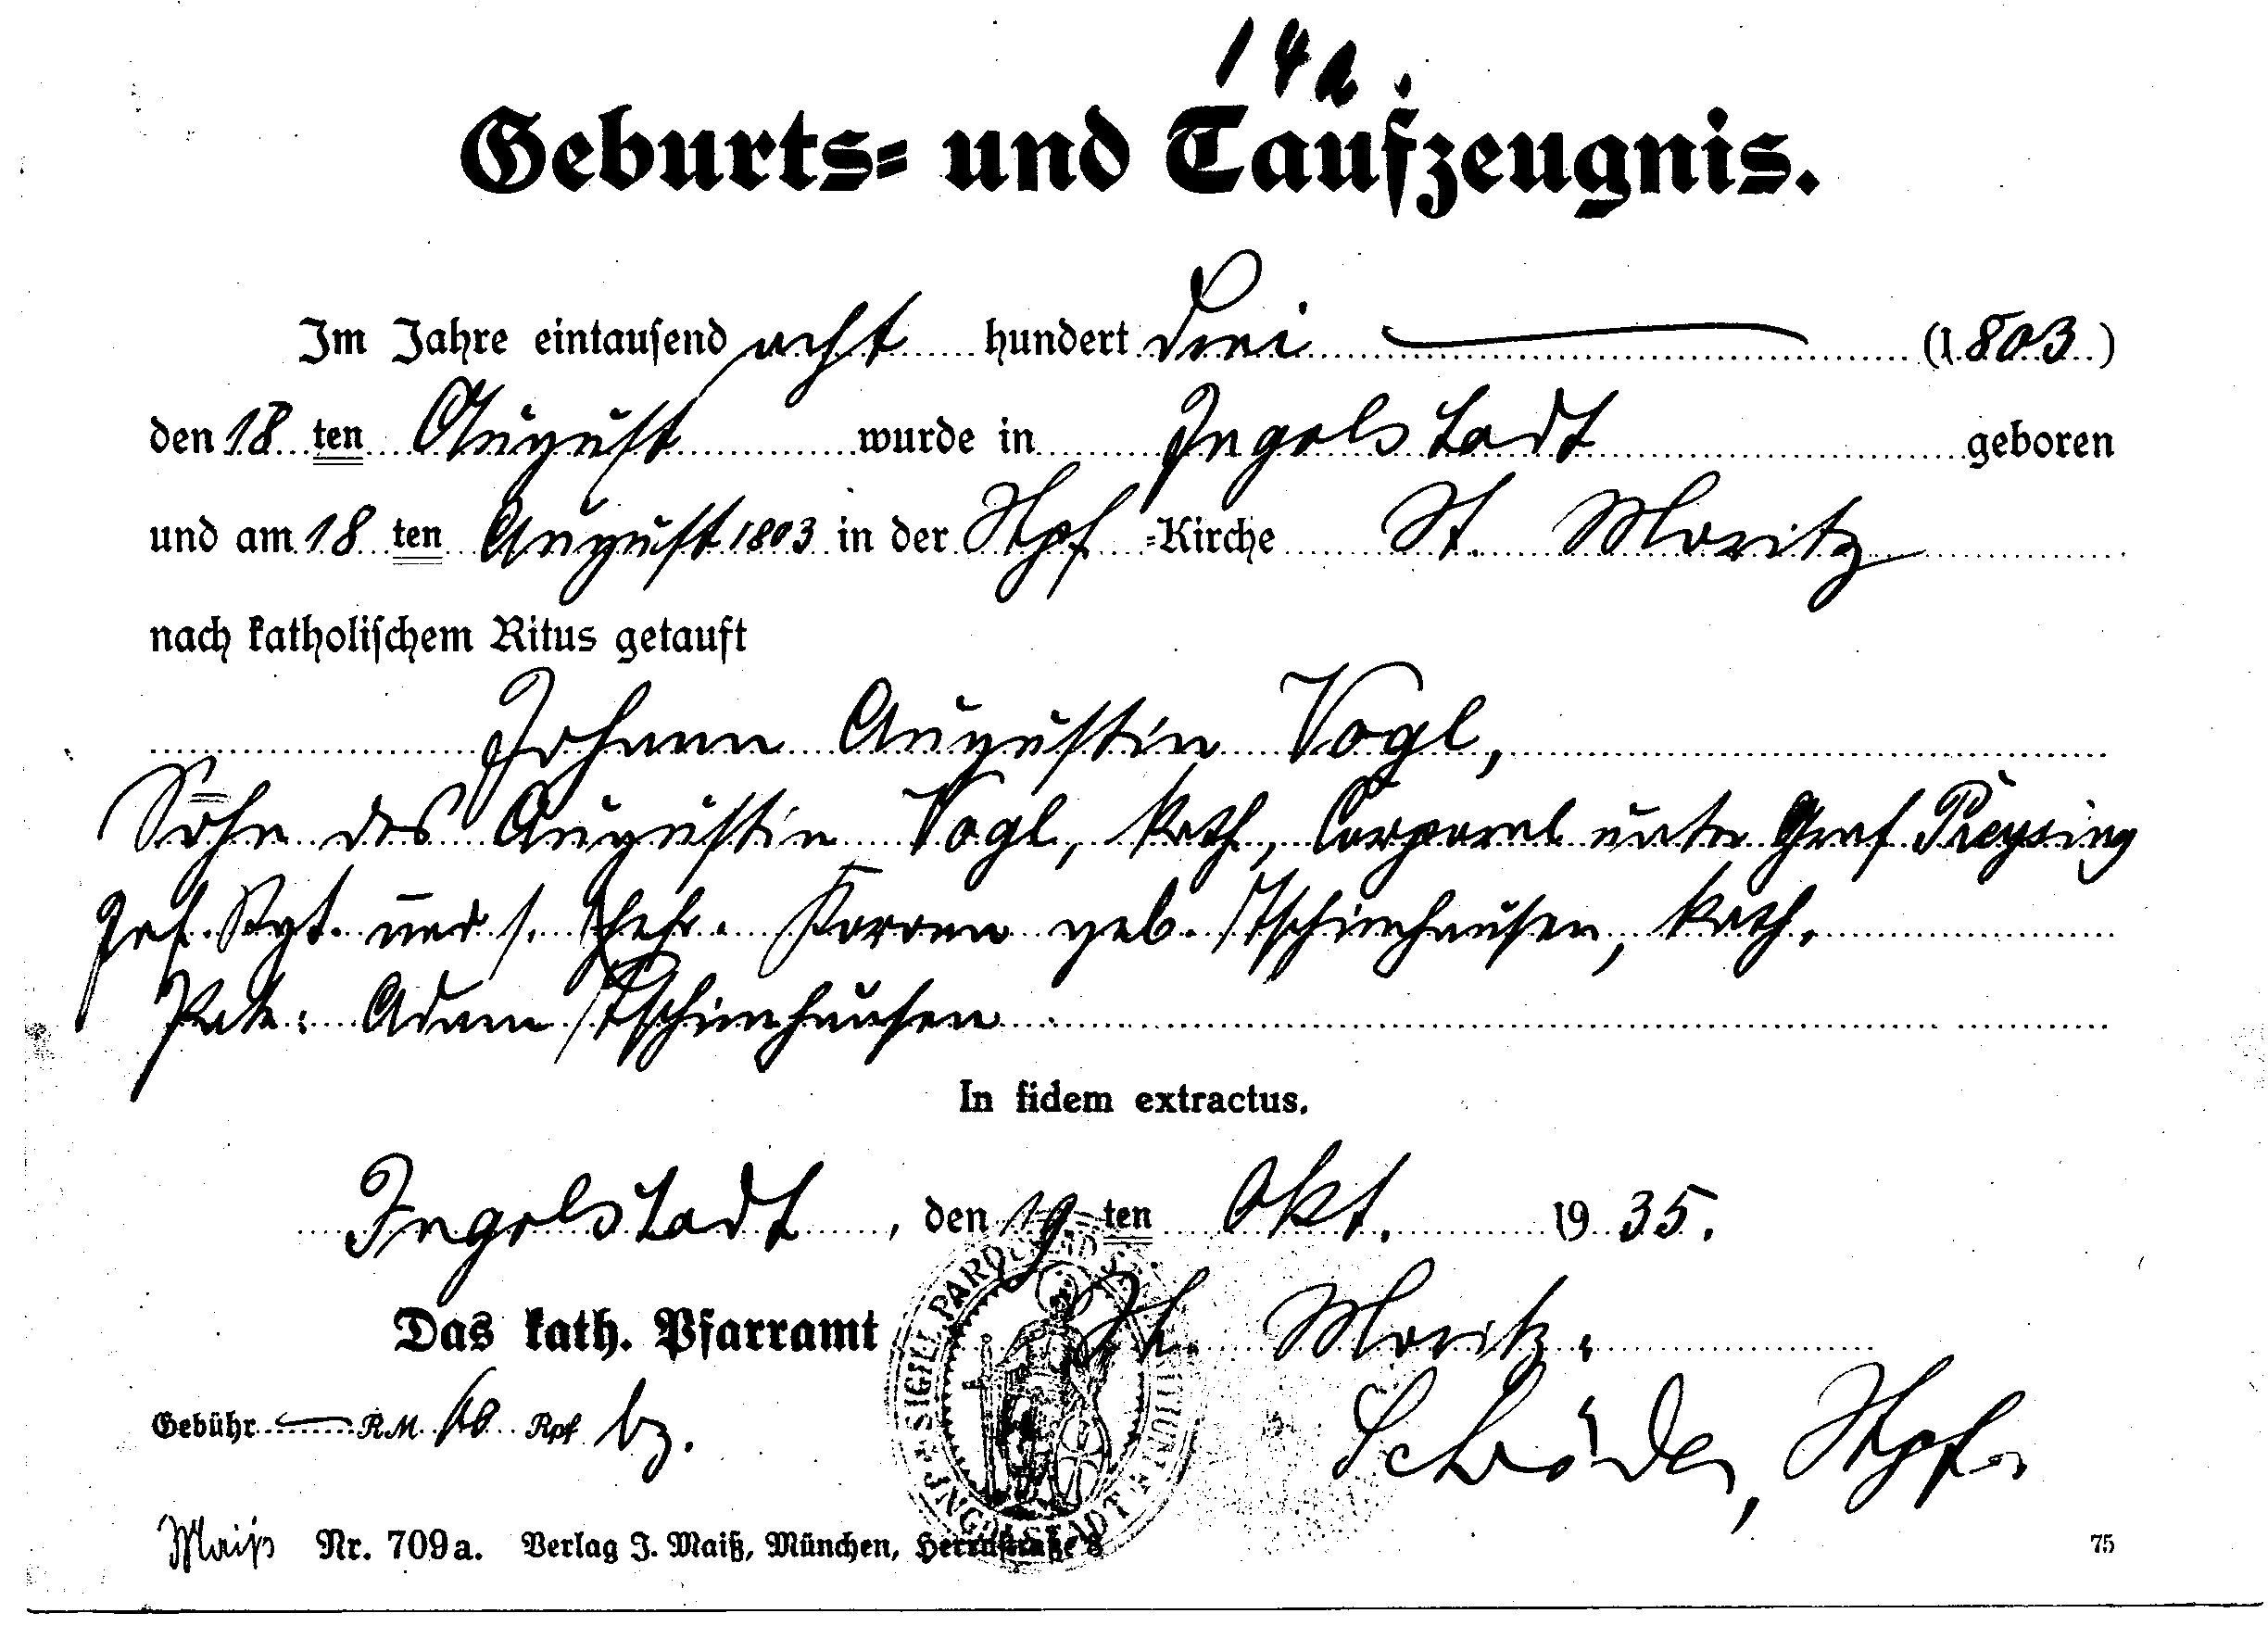 14a.
Geburts- und Taufzeugnis.
Im Jahre eintausend acht hundert drei (1803)
den 18 ten August wurde in Ingolstadt geboren
und am 18 ten August 1803 in der Stpf -Kirche St. Moritz
nach katholischem Ritus getauft
Johann Augustin Vogl,
Sohn des Augustin Vogl, kath, Corporal unter Graf Preysing
Inf. Rgt. und s. Ehefr. geb. kath.
Pate: Adam
In fidem extractus.
Ingolstadt, den 19 ten Okt. 1935.
Das kath. Pfarramt St. Moritz.
Gebühr RM 60 Rpf bz.
Schröder, Stpf.
SIGILL. PAROCH INGOLSTADT
Maiß Nr. 709a. Verlag J. Maiß, München, Herrnstraße 8
75